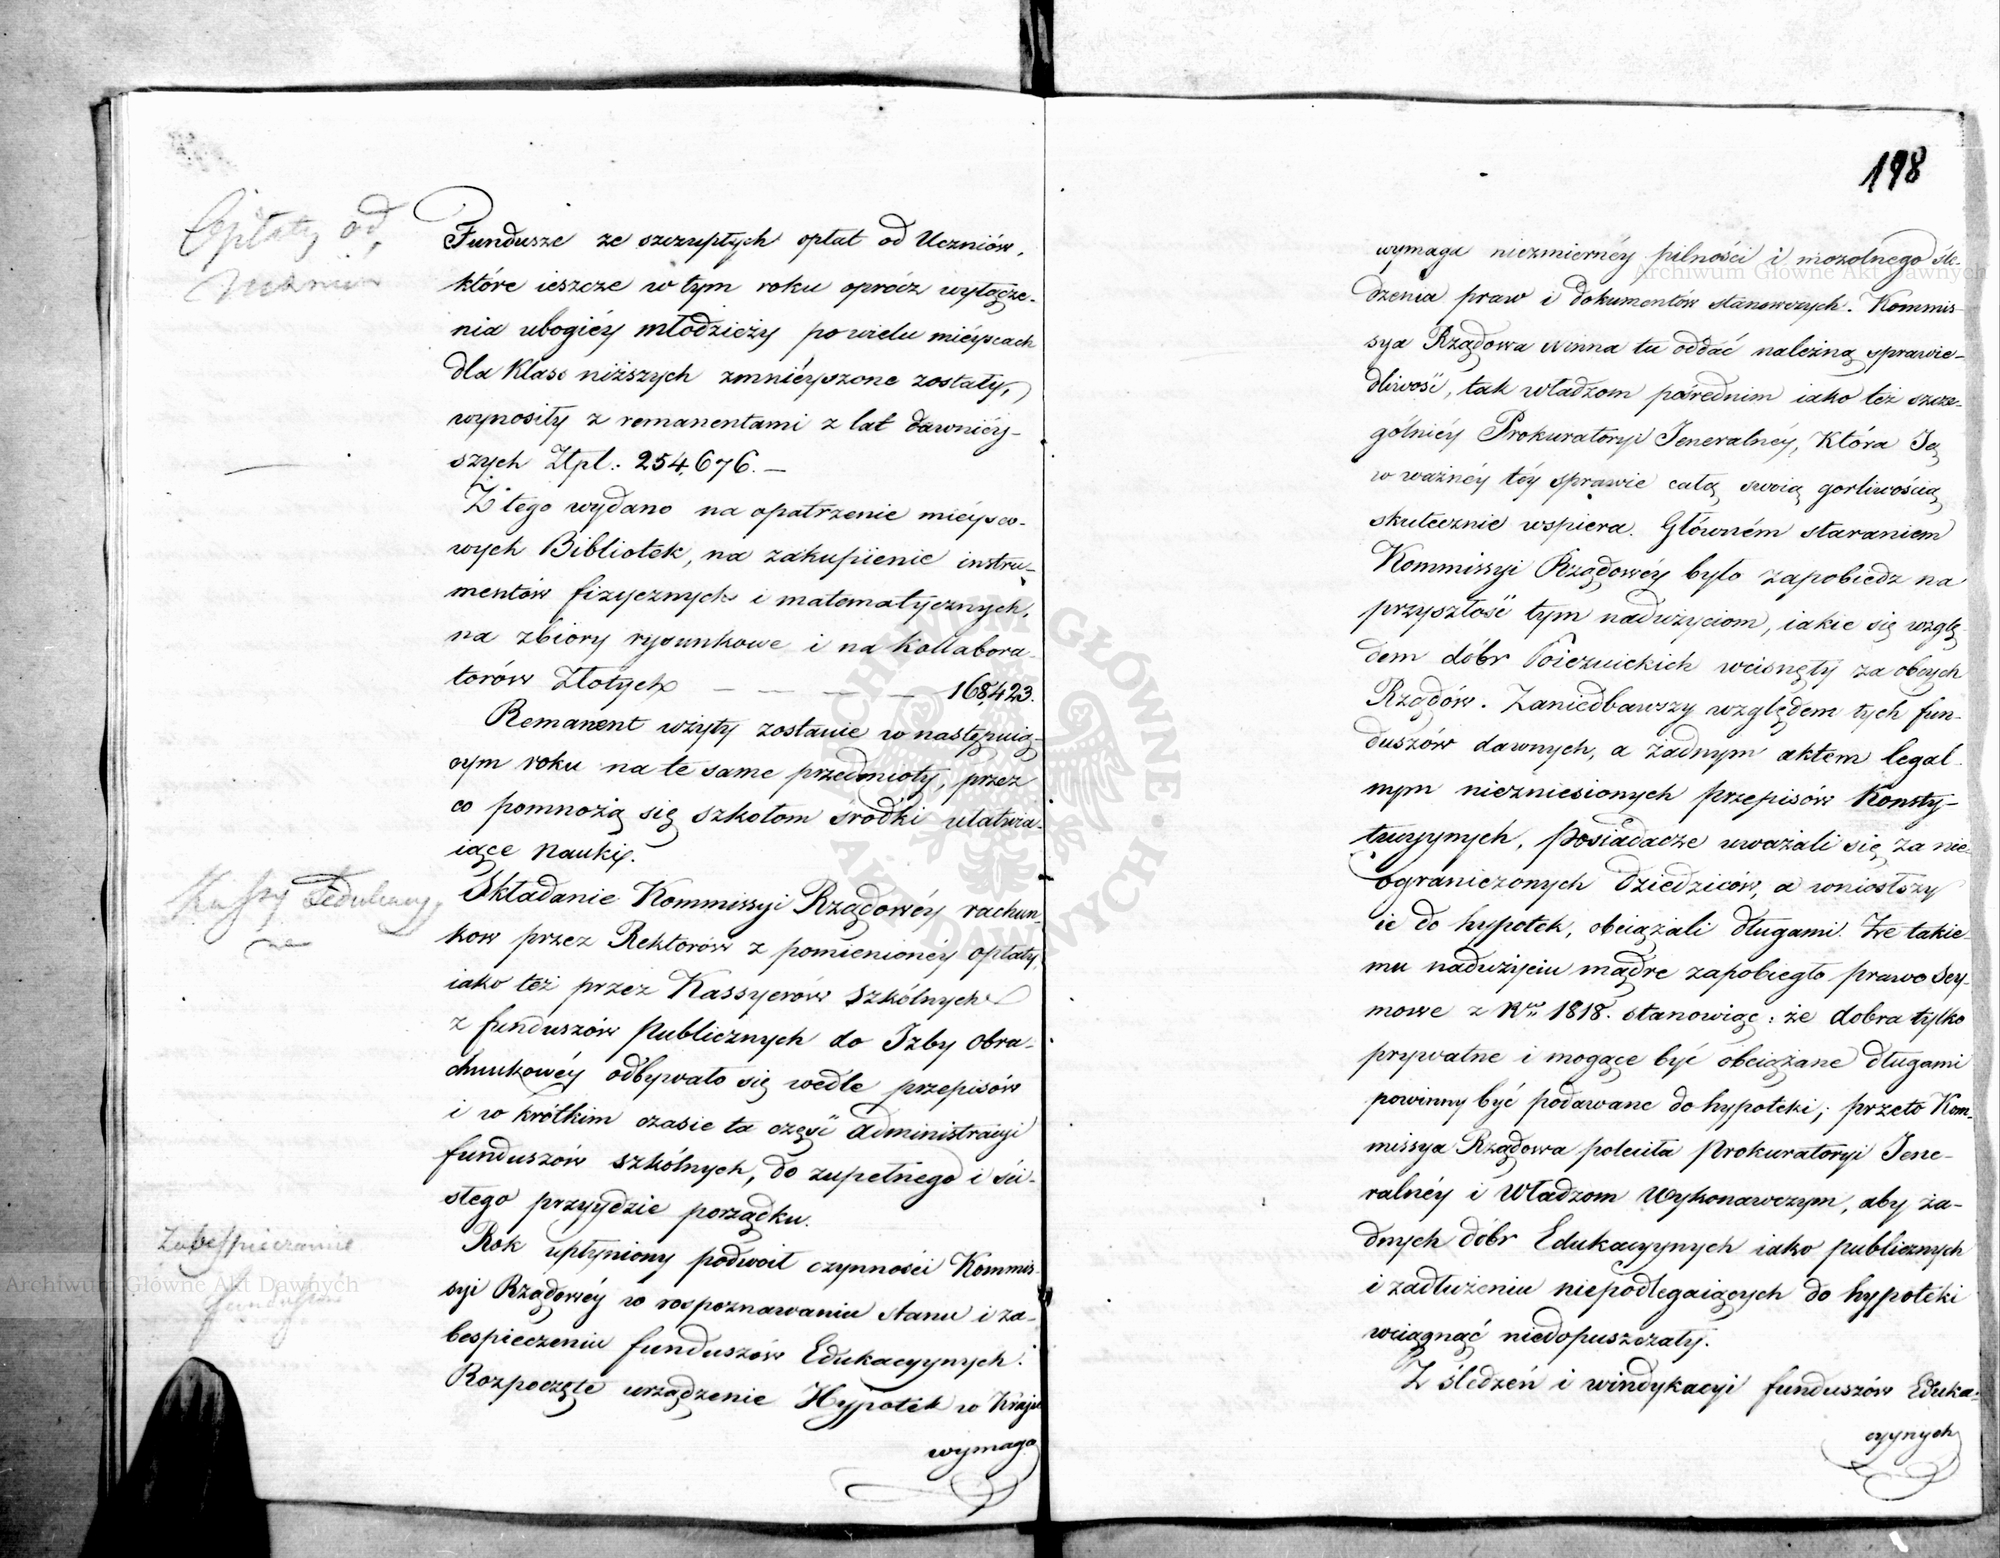 Opłaty od
Uczniów
Fundusze ze szczupłych opłat od Uczniów,
które ieszcze w tym roku oprócz wyłącze-
nia ubogiéy młodzieży po wielu mieyscach
dla Klass niższych zmniéyszone zostały,
wynosiły z remanentami z lat dawniéy-
szych Ztpl: 254,676. —
Z tego wydano na opatrzenie mieysco-
wych Bibliotek, na zakupienie instru-
mentów fizycznych i matematycznych,
na zbiory rysunkowe i na kollabora-
torów Złotych — — — — 168,423.
Remanent użyty zostanie w następuią-
cym roku na te same przedmioty, przez
co pomnożą się szkołom środki ułatwia-
iące Nauki.
Kassy Edukacyy
ne
Składanie Kommissyi Rządowéy rachun-
kow przez Rektorów z pomienionéy opłaty,
iako też przez Kassyerów Szkólnych
z funduszów Publicznych do Izby Obra-
chunkowéy odbywało się wedle przepisów
i w krótkim czasie ta część Administracyi
funduszów szkólnych, do zupełnego i ści-
słego przyydzie porządku.
Zabespieczenie
funduszów
Rok upłyniony podwoił czynności Kommis-
syi Rządowéy w rospoznawaniu stanu i za-
bespieczeniu funduszów Edukacyynych.
Rozpoczęte urządzenie Hypotek w Kraju
wymaga
198
wymaga niezmiernéy pilności i mozolnego śle-
dzenia praw i dokumentów stanowczych. Kommis-
sya Rządowa winna tu oddać należną sprawie-
dliwość, tak władzom pośrednim iako też szcze-
gólniéy Prokuratoryi Jeneralnéy, Która Ją
w ważnéy téy sprawie całą swoią gorliwością
skutecznie wspiera. Główném staraniem
Kommissyi Rządowéy było zapobiedz na
przyszłość tym nadużyciom, iakie się wzglę-
dem dóbr Poiezuickich wcisnęły za obcych
Rządów. Zaniedbawszy względem tych fun-
duszów dawnych, a żadnym aktem legal-
nym niezniesionych przepisów Konsty-
tucyynych, posiadacze uważali się za nie-
ograniczonych Dziedziców, a wniosłszy
ie do hypotek, obciążali długami. Ze takie-
mu nadużyciu mądre zapobiegło prawo Sey-
mowe z Ru 1818. stanowiąc: że dobra tylko
prywatne i mogące być obciążane długami
powinny być podawane do hypoteki; przeto Kom-
missya Rządowa poleciła Prokuratoryi Jene-
ralnéy i Władzom Wykonawczym, aby ża-
dnych dóbr Edukacyynych iako publicznych
i zadłużeniu niepodlegaiących do hypoteki
wciągnąć niedopuszczały.
Z śledzeń i windykacyi funduszów Eduka-
cyynych
Archiwum Główne Akt Dawnych
Archiwum Główne Akt Dawnych
ARCHIWUM GŁÓWNE AKT DAWNYCH